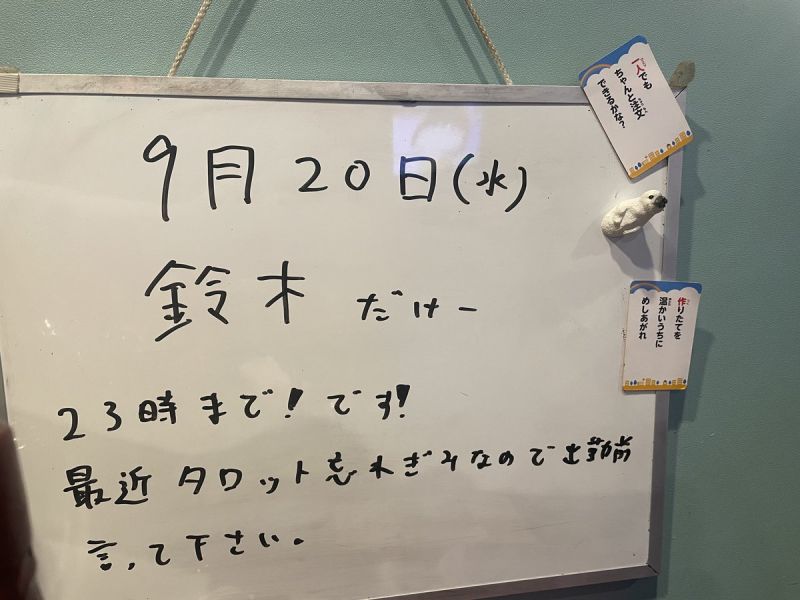 9月20日(水)
鈴木 だけー
23時まで!です!
最近タロット忘れぎみなので出勤前
言って下さい。
一人でも
ちゃんと注文
できるかな?
作りたてを
温かいうちに
めしあがれ